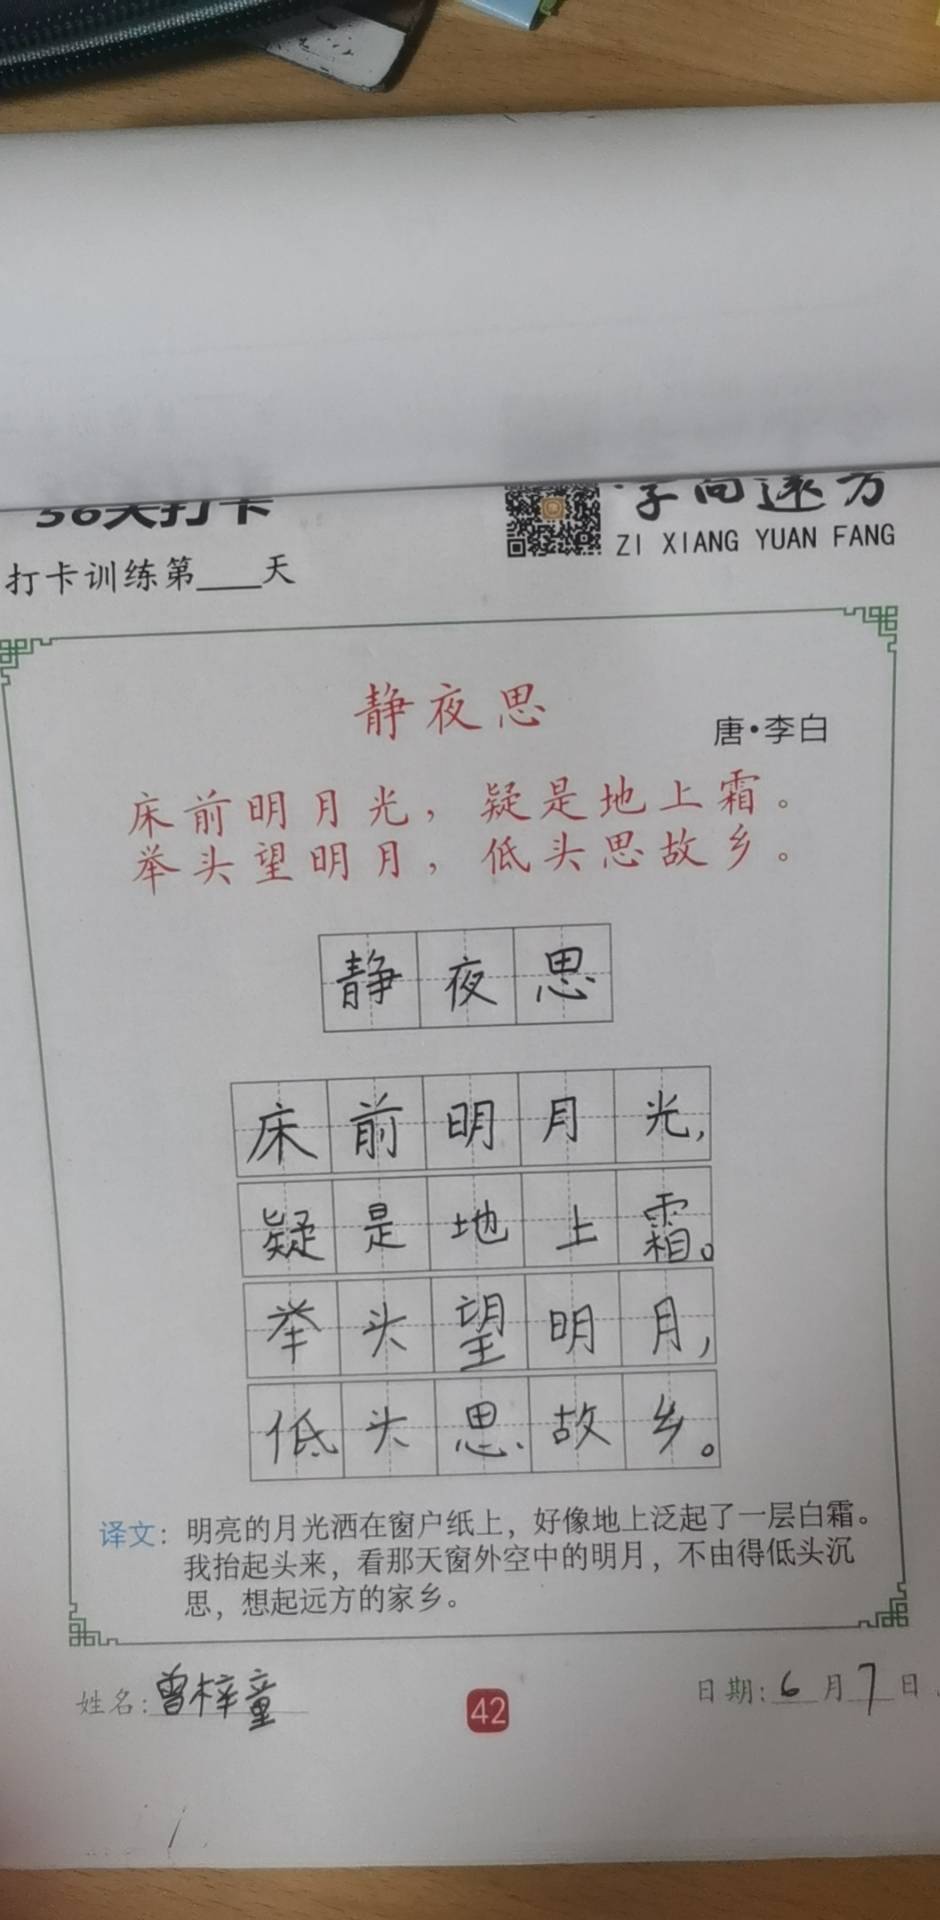 36天打卡
字向远方
ZI XIANG YUAN FANG
打卡训练第____天
静夜思
唐·李白
床前明月光，疑是地上霜。
举头望明月，低头思故乡。
静夜思
床前明月光，
疑是地上霜。
举头望明月，
低头思故乡。
译文：明亮的月光洒在窗户纸上，好像地上泛起了一层白霜。
我抬起头来，看那天窗外空中的明月，不由得低头沉
思，想起远方的家乡。
姓名：曾梓童
42
日期：6月7日